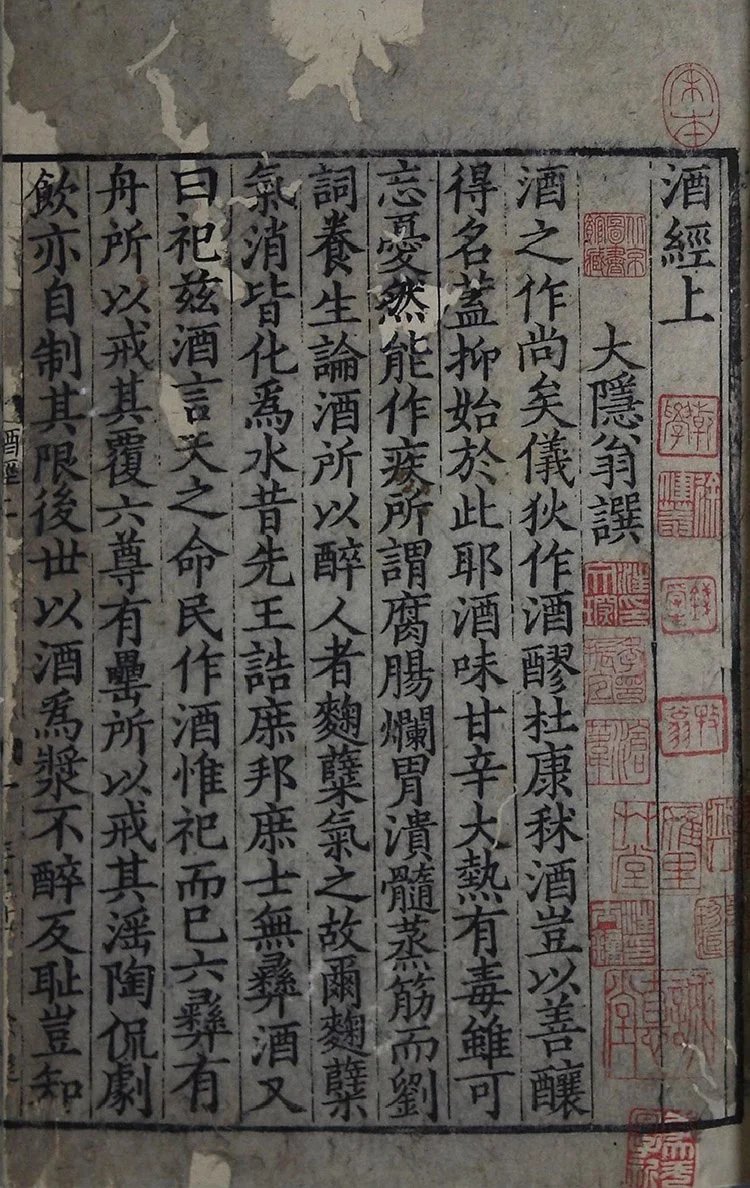 酒經上
大隱翁譔
酒之作尚矣儀狄作酒醪杜康秫酒豈以善釀
得名蓋抑始於此耶酒味甘辛大熱有毒雖可
忘憂然能作疾所謂腐腸爛胃潰髓蒸筋而劉
詞養生論酒所以醉人者麴糵氣之故爾麴糵
氣消皆化爲水昔先王誥庶邦庶士無彝酒又
曰祀茲酒言天之命民作酒惟祀而已六彝有
舟所以戒其覆六尊有罍所以戒其淫陶侃劇
飲亦自制其限後世以酒爲漿不醉反恥豈知